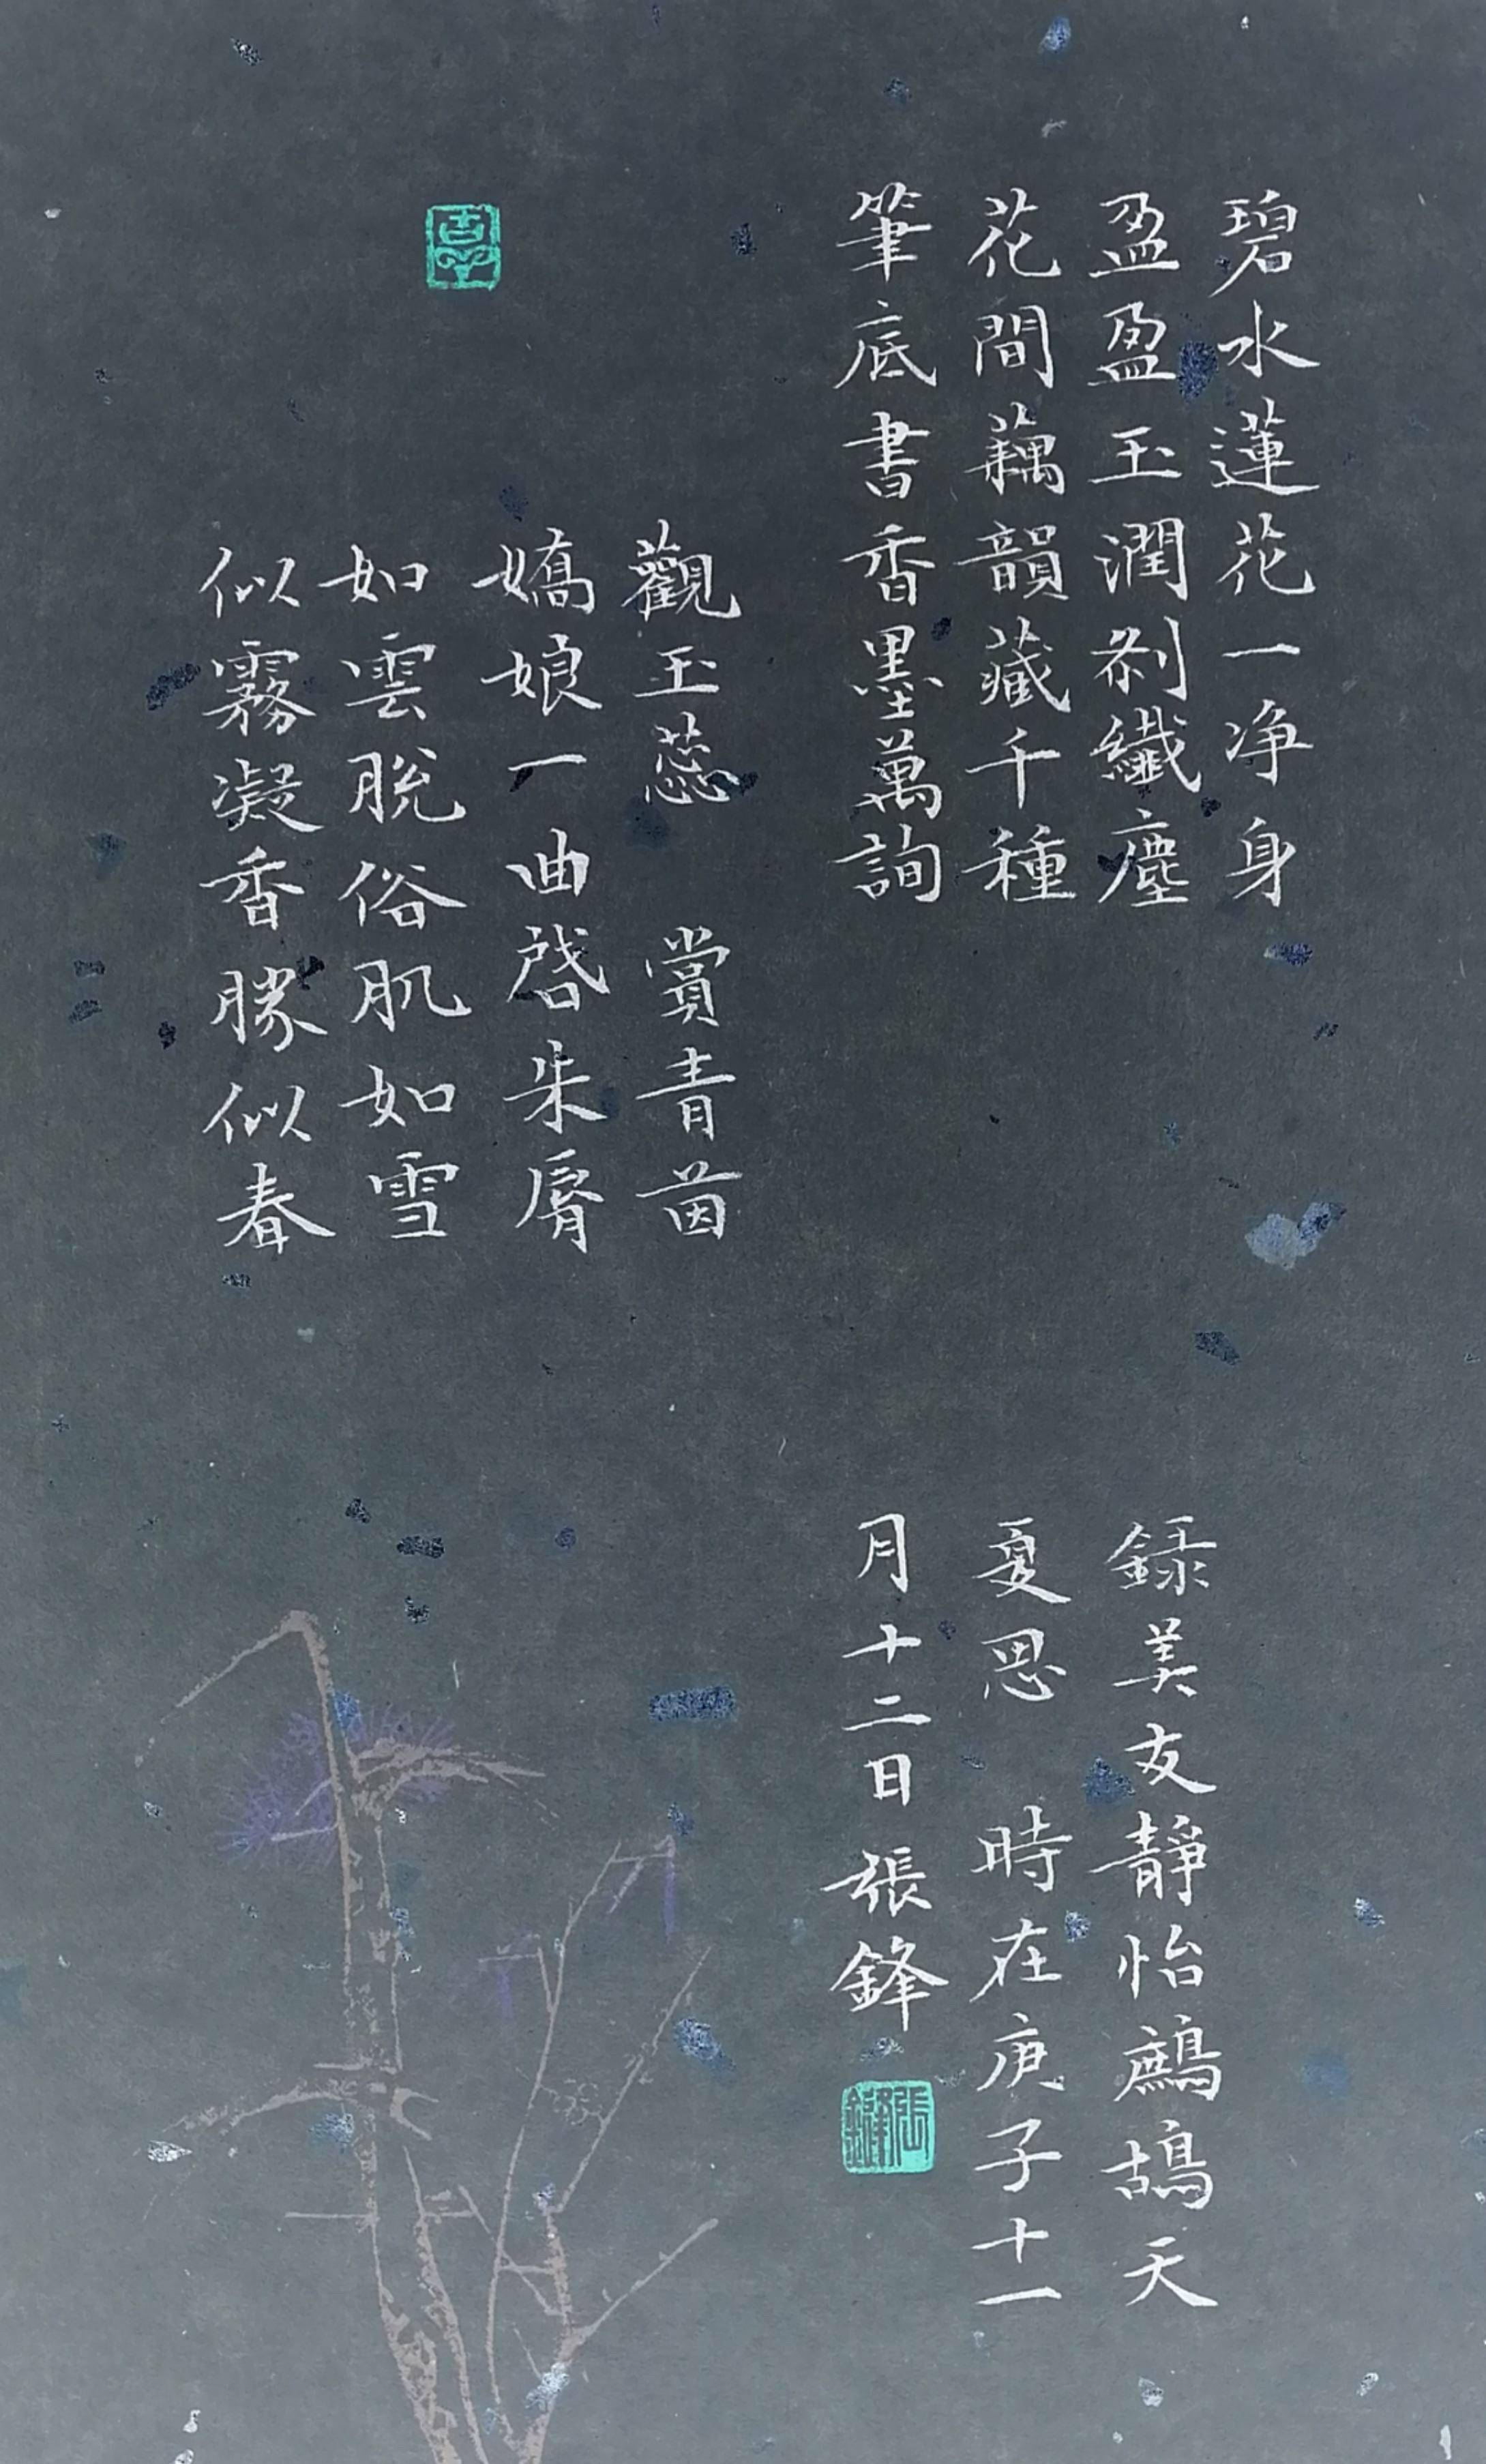 碧水蓮花一净身
盈盈玉潤剎纖塵
花間藕韻藏千種
筆底書香墨萬詢
觀玉蕊 賞青茵
嬌娘一曲啓朱脣
如雲脫俗肌如雪
似霧凝香勝似春
録美友靜怡鷓鴣天
夏思 時在庚子十一
月十二日張鋒
張鋒